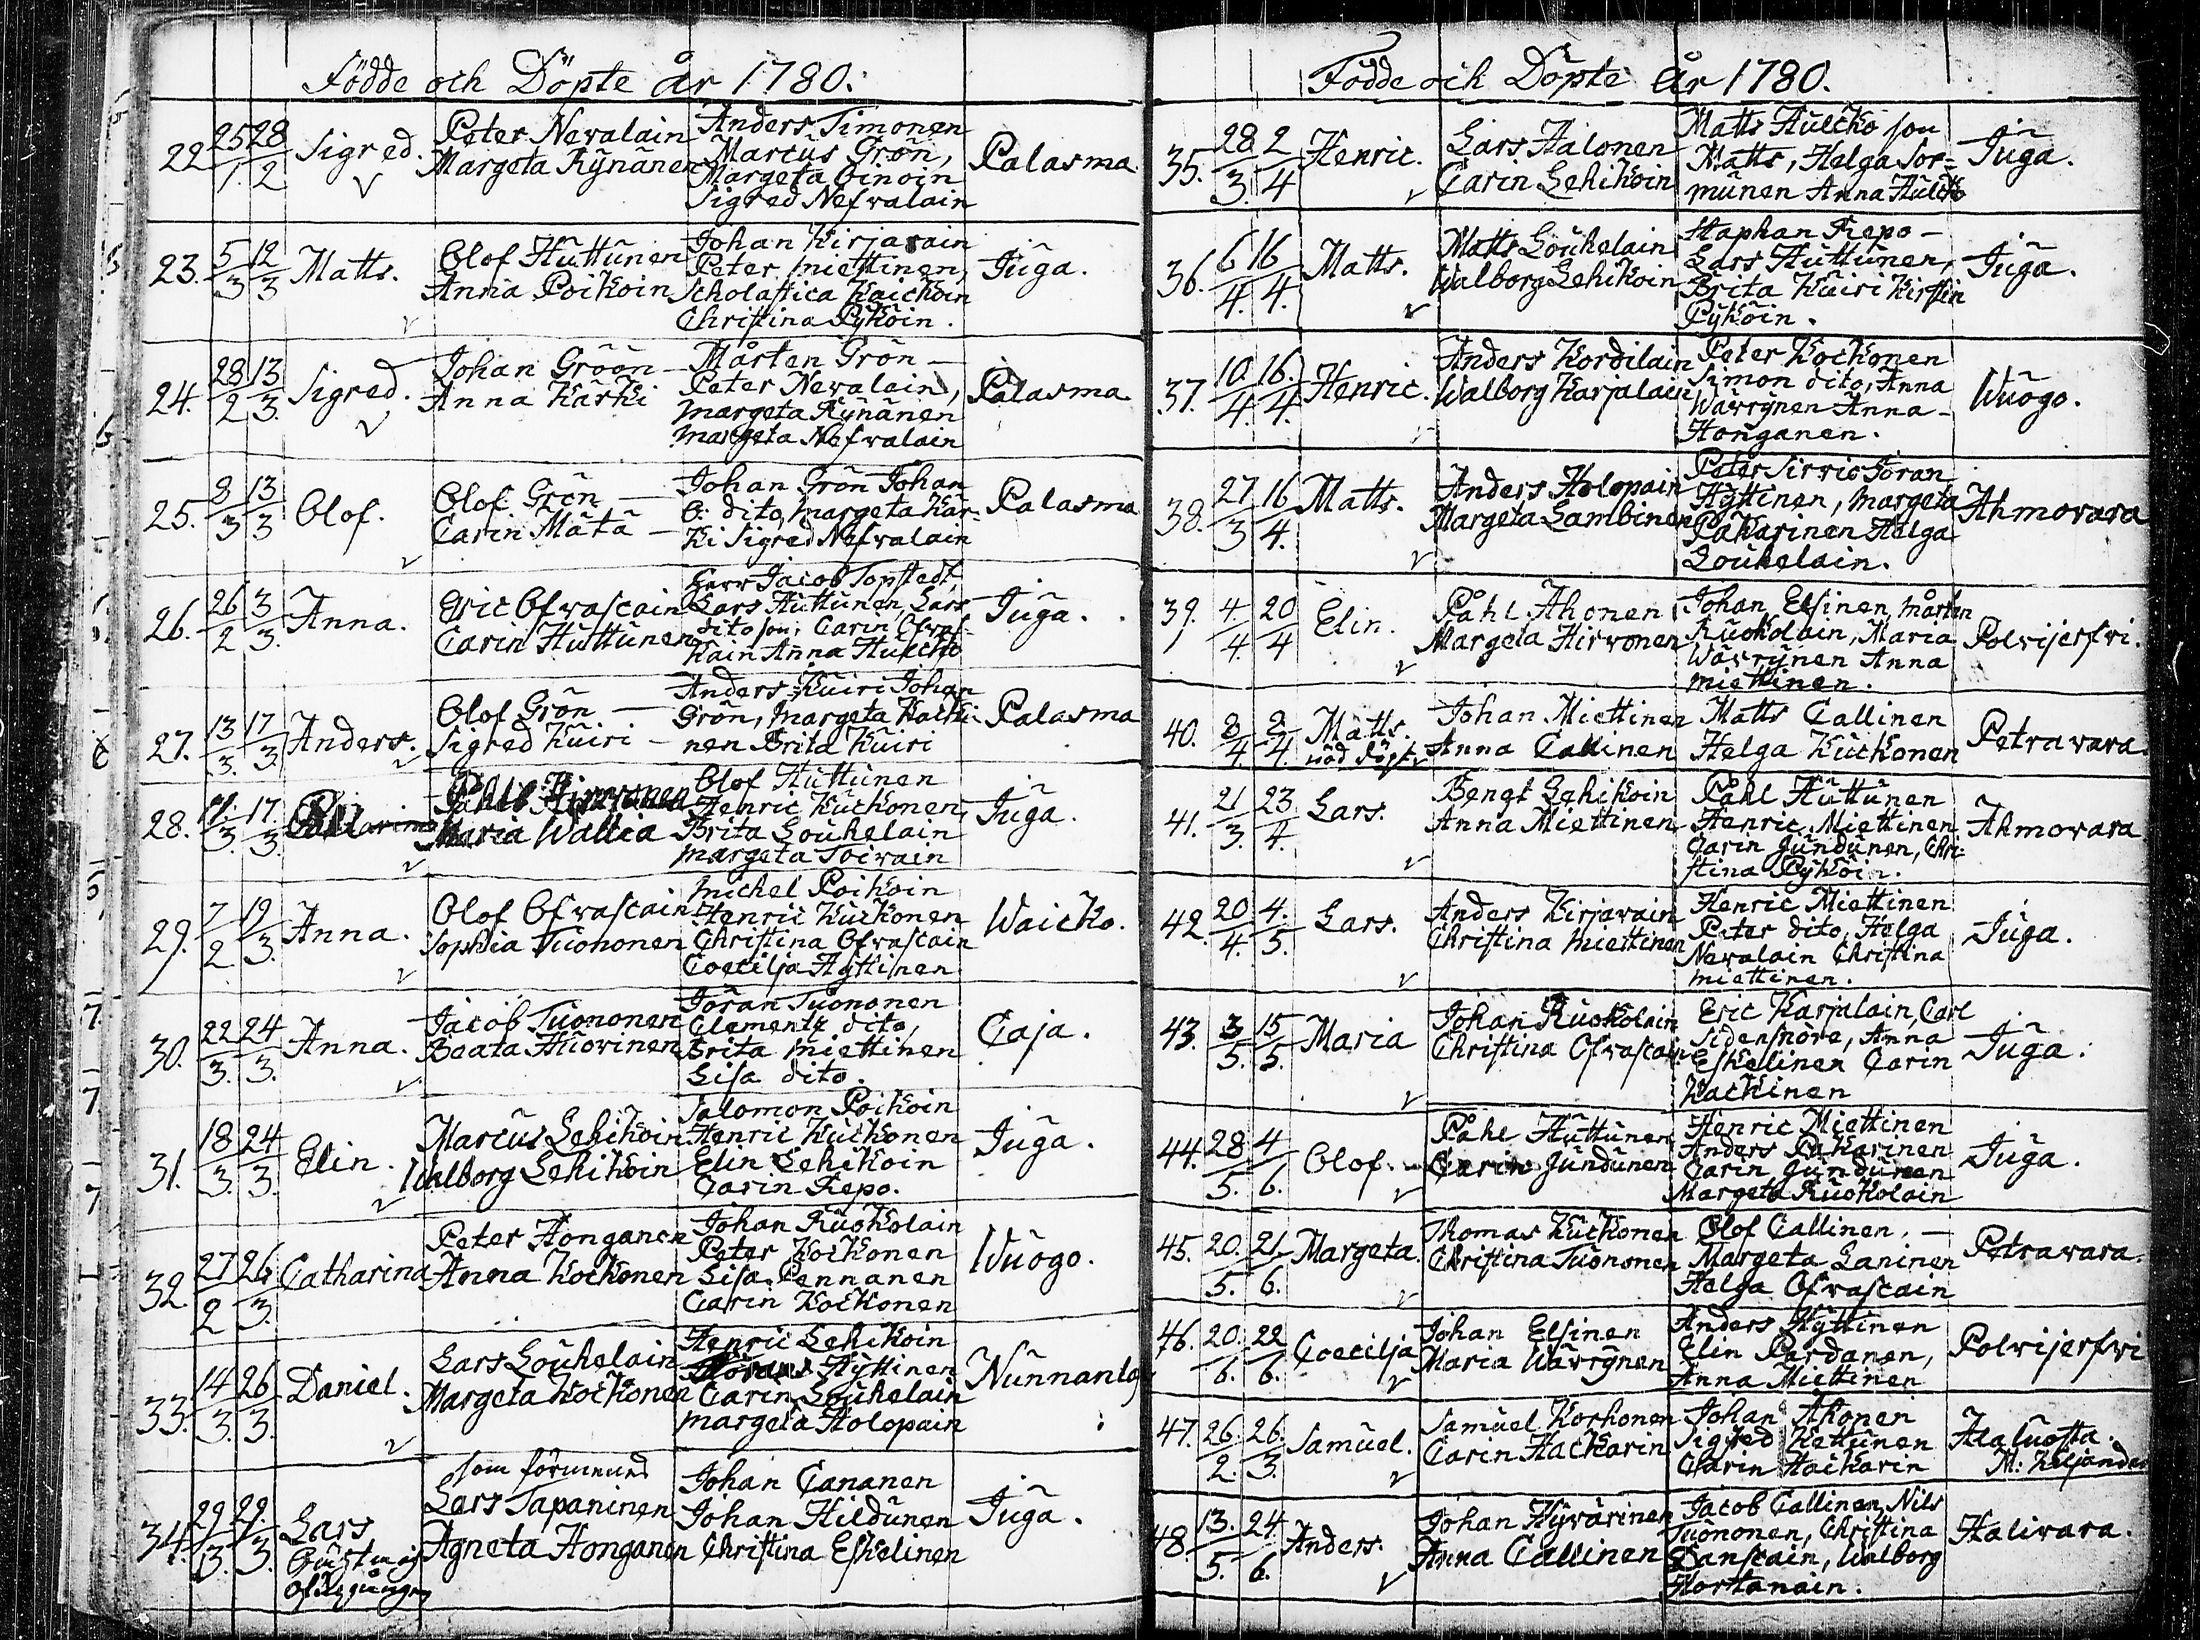 Födde och Döpte år 1780.
22. 25/1. 28/2 Sigred. Peter Nevalain Margeta Rÿnänen
Anders Timonen
Marcus Grön,
Margeta Oinoin
Sigred Nefvalain
Palasma
23. 5/3 12/3 Matts. Olof Huttunen Anna Poikoin
Johan Kirjavain
Peter Miettinen,
Scholastica Kaickoin
Christina Pÿköin.
Juga.
24. 28/2 13/3. Sigred. Johan Gröön Anna Kärki
Mårten Grön
Peter Nevalain,
Margeta Rÿnänen
Margeta Nefvalain
Palasma
25. 8/3 13/3 Olof. Olof Grön Carin Mätä
Johan Grön Johan
O: dito, Margeta Kär-
ki Sigred Nefvalain
Palasma
26. 26/2 3/3. Anna. Eric Ofvascain Carin Huttunen
Herr Jacob Topstedt,
Lars Huttunen, Lars
dito son, Carin Ofvas-
kain Anna Hulcko
Juga.
27. 13/3. 17/3. Anders. Olof Grön Sigred Kuiri
Anders Kuiri Johan
Grön, Margeta
nen Brita Kuiri
Palasma
28. 17/3. Maria Wallia
Olof Huttunen
Henric Kuckonen
Brita Louhelain
Margeta Toivain
Juga.
29. 7/2 19/3. Anna. Olof Ofvascain Sophia Tuononen
Michel Poikoin
Henric Kuckonen
Christina Ofvascain
Coecilja Hÿttinen
Waicko.
30. 22/3. 24/3. Anna. Jacob Tuononen Beata Huovinen
Jöran Tuononen
Clementz dito,
Brita Miettinen
Lisa dito.
Caja.
31. 18/3. 24/3. Elin. Marcus Lehikoin Walborg Lehikoin
Salomon Poikoin
Henric Kuckonen
Elin Lehikoin
Carin Repo.
Juga.
32. 27/2 26/3. Catharina Peter Honganen Anna Kockonen
Johan Ruokolain
Peter Kockonen
Lisa Pennanen
Carin Kockonen
Wuogo.
33. 14/3. 26/3. Daniel. Lars Louhelain Margeta Kockonen
Henric Lehikoin
Hÿttinen
Carin Louhelain
Margeta Holopain
Nunnanla
34. 29/3. 29./3. Lars
som förmenes
Lars Tapaninen
Agneta Honganen
Johan Cananen
Johan Hildunen
Christina Eskelinen
Juga.
Födde och Döpte År 1780.
35. 28/3. 2/4 Henric. Lars Halonen Carin Lehikoin
Matts Hulcko son
Matts, Helga Sor-
munen Anna Hulcko
Juga.
36. 6/4. 16/4. Matts. Matts Louhelain Walborg Lehikoin
Staphan Repo
Lars Huttunen,
Brita Kuiri Kirstin
Pÿköin.
Juga.
37. 10./4. 16./4. Henric. Anders Kordilain Walborg Karjalain
Peter Kockonen
Simon dito, Anna
Wävrÿnen Anna
Honganen.
Wuogo.
38. 27/3 16/4. Matts. Anders Holopain Margeta Lambinen
Peter Sirvio Jöran
Hÿttinen, Margeta
Pakarinen Helga
Louhelain.
Ahmovara
39. 4./4. 20/4 Elin. Påhl Ahonen Margeta Hirvonen
Johan Elsinen, Mårten
Ruokolain, Maria
Wävrÿnen Anna
Miettinen.
Polvijerfvi.
40. 2/4. 2/4. Matts. nöd döpt Johan Miettinen Anna Callinen
Matts Callinen
Helga Kuckonen
Petravara
41. 21/3. 23/4. Lars. Bengt Lehikoin Anna Miettinen
Påhl Huttunen
Henric Miettinen
Carin Jundunen, Chri-
stina Pÿköin.
Ahmovara
42. 20/4. 4./5. Lars. Anders Kirjavain Christina Miettinen
Henric Miettinen
Peter dito, Helga
Nevalain Christina
Miettinen.
Juga.
43. 3/5. 15/5. Maria Johan Ruokolain Christina Ofvascain
Eric Karjalain, Carl
Sidensnöre, Anna
Eskelinen Carin
Kackinen
Juga.
44. 28/5. 4/6. Olof. Påhl Huttunen Carin Jundunen
Henric Miettinen
Anders Pakarinen
Carin Jundunen
Margeta Ruokolain
Juga.
45. 20./5. 21/6. Margeta. Thomas Kuckonen Christina Tuononen
Olof Callinen.
Margeta Laninen
Helga Ofvascain
Petravara.
46. 20./6. 22/6. Coecilja Johan Elsinen Maria Wävrÿnen
Anders Hÿttinen
Elin Pardanen,
Anna Miettinen
Polvijerfvi
47. 26./2. 26./3. Samuel. Samuel Korhonen Carin Hackarin
Johan Ahonen
Sigred Kettunen
Carin Hackarin
Halusta.
48. 13./5. 24./6. Anders. Johan Hÿvärinen Anna Callinen
Jacob Callinen, Nils
Tuononen, Christina
Danscain, Walborg
Hortanain.
Halivara.